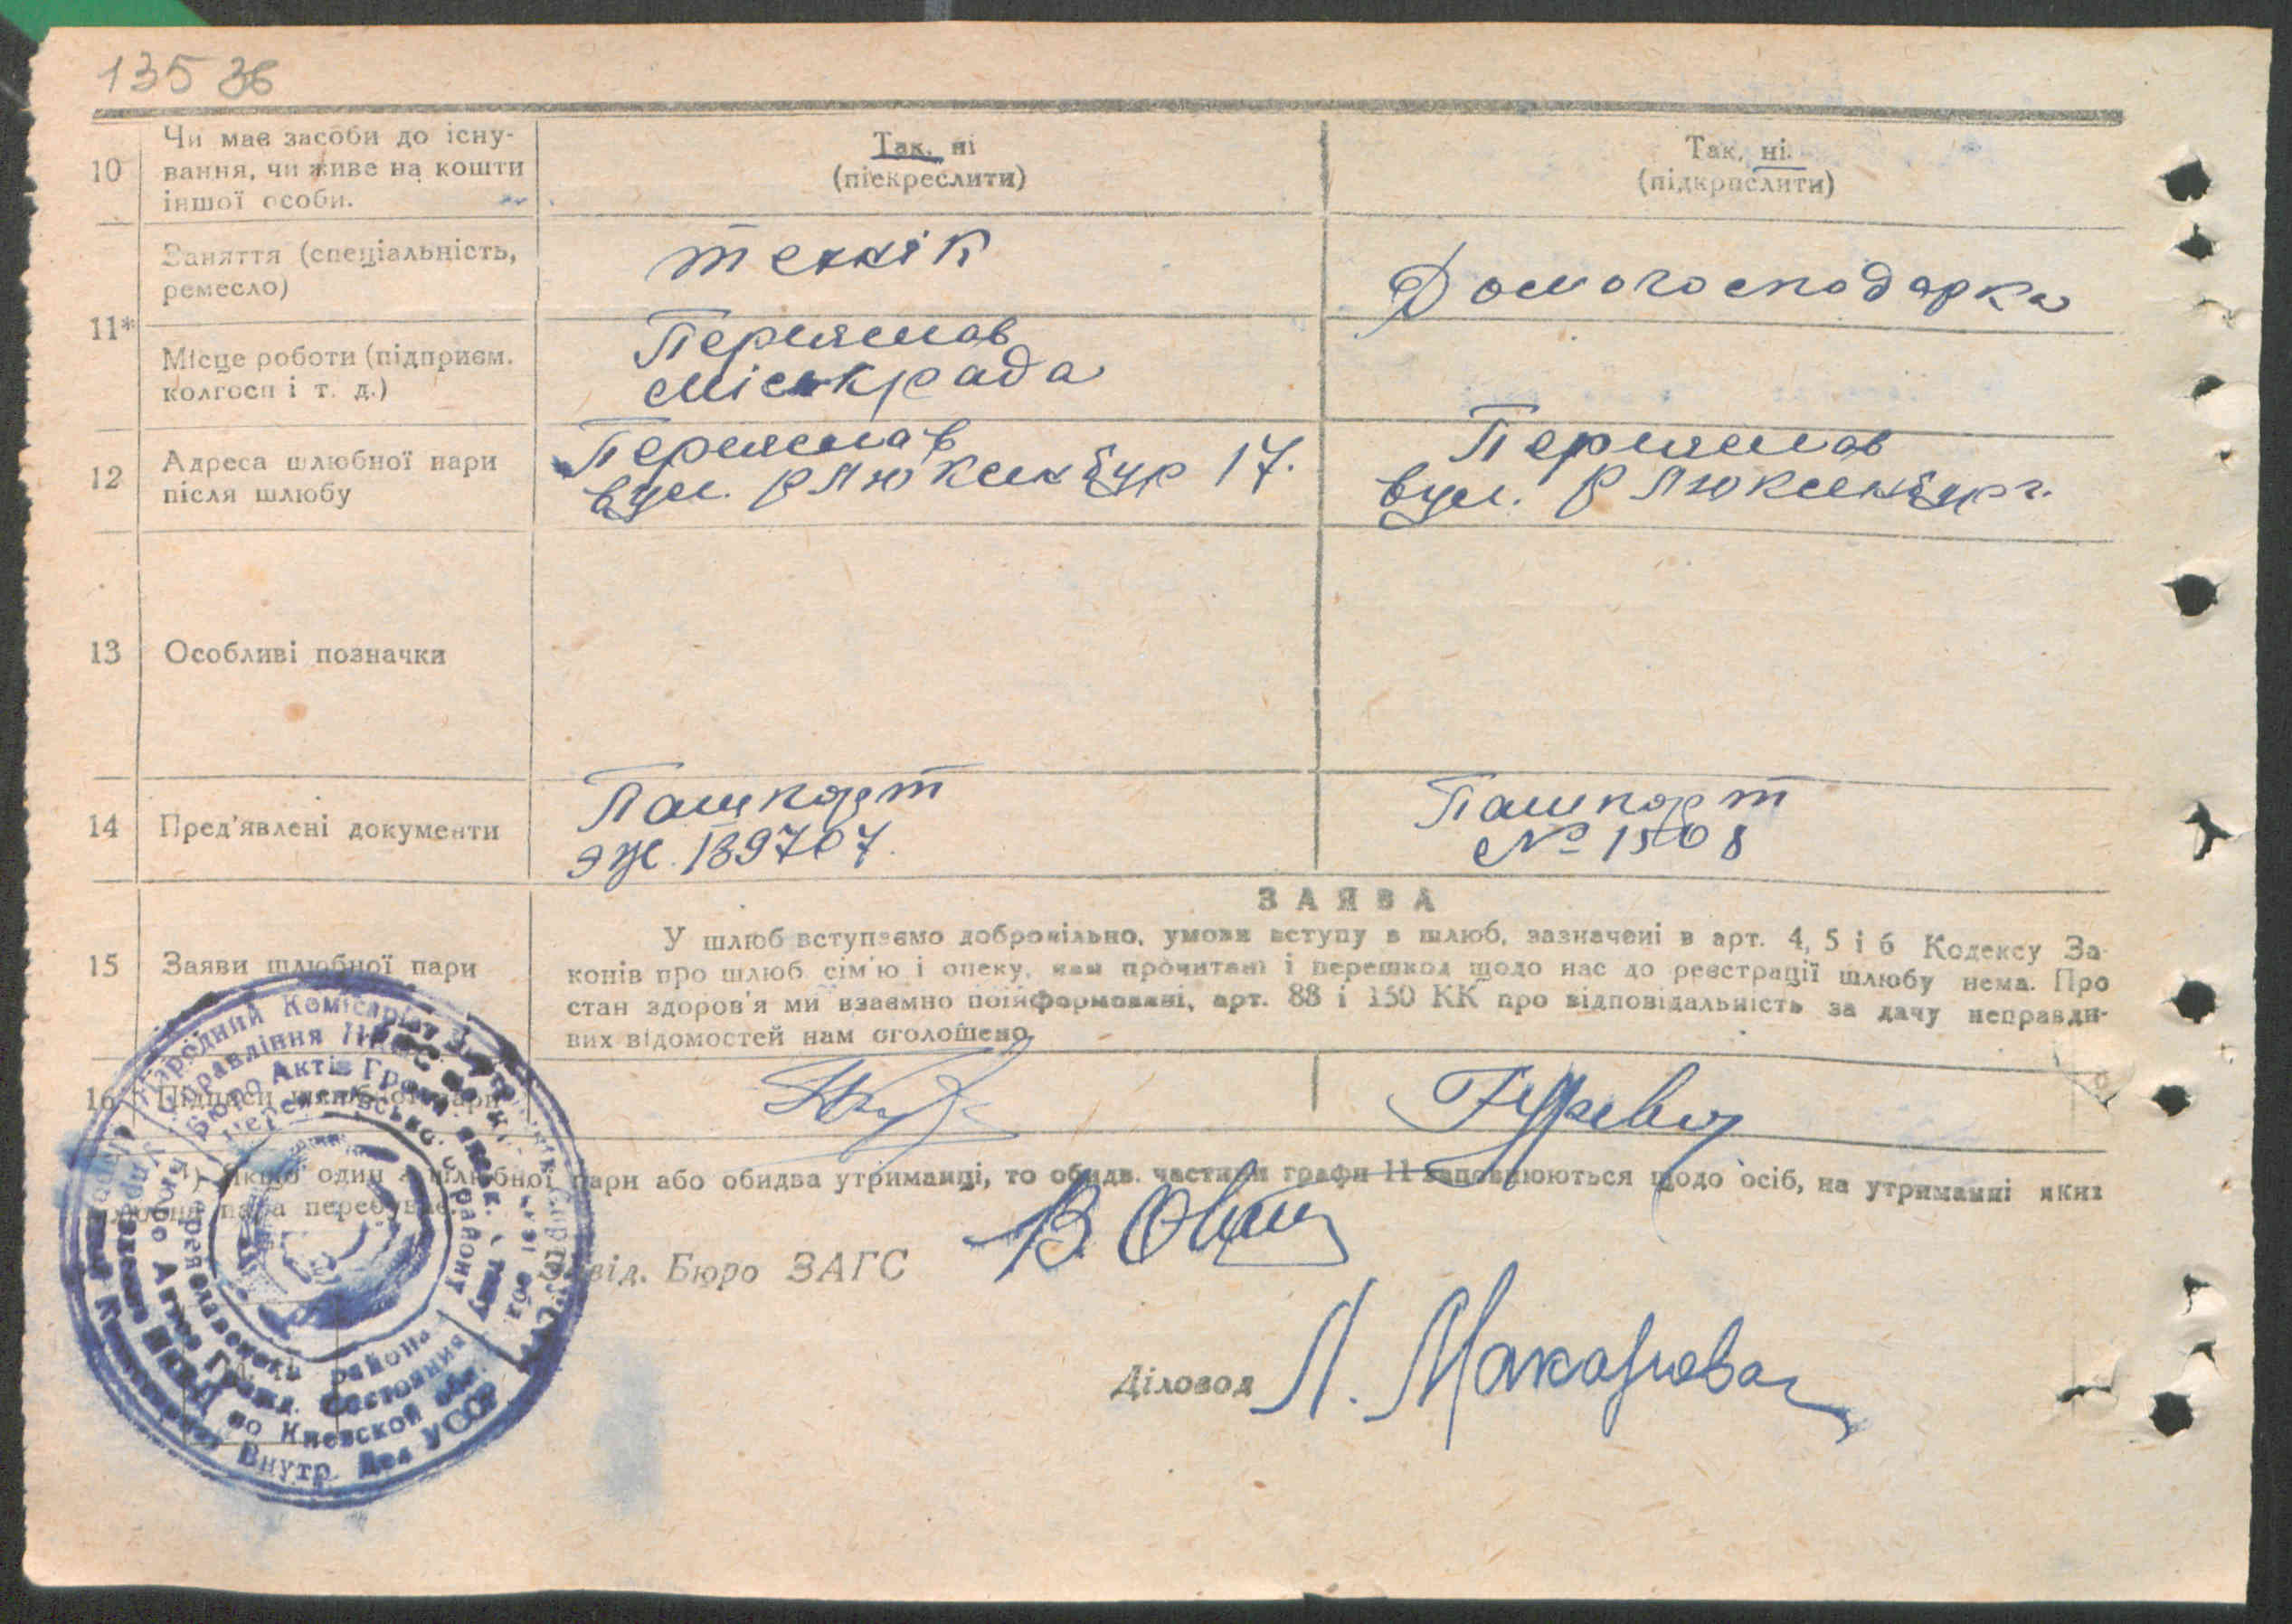 135 36
10
Чи має засоби до існу-
вання, чи живе на кошти
іншої особи.
Так, ні
(піекреслити)
Так, ні.
(підкрпслити)
11*
Заняття (спеціальність,
ремесло)
технік
Домогосподарка
Місце роботи (підприєм.
колгосп і т. д.)
Переяслав
Міськрада
12
Адреса шлюбної пари
після шлюбу
Переяслав
вул. Р Люксенбур 17.
Переяслав
вул. Р Люксенбург.
13
Особливі позначки
14
Пред'явлені документи
Пашпорт
ЭЖ. 189707.
Пашпорт
№ 1508
15
Заяви шлюбної пари
ЗАЯВА
У шлюб вступаємо добровільно, умови вступу в шлюб, зазначені в арт. 4, 5 і 6 Кодексу За-
конів про шлюб сім'ю і опеку, нам прочитані і перешкод щодо нас до реєстрації шлюбу нема. Про
стан здоров'я ми взаємно поінформовані, арт. 88 і 150 КК про відповідальність за дачу неправди-
вих відомостей нам оголошено.
16
Підписи шлюбної пари
Гуревич
*) Якщо один з шлюбної пари або обидва утриманці, то обидв. частини графи 11 заповнюються щодо осіб, на утриманні яких
шлюбна пара перебуває.
Завід. Бюро ЗАГС
Діловод Л. Макарова
Народний Комісаріат
Управління НКВС
Бюро Актів Гром. стану
Переяславського району
Переяславского района
Бюро Актов Гражд. Состояния
Управление НКВД по Киевской обл.
Народный Комиссариат Внутр. Дел УССР